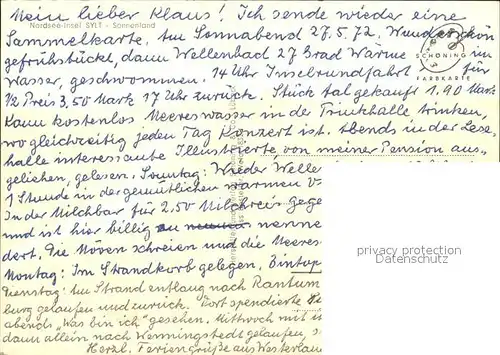 Mein lieber Klaus! Ich sende wieder eine
Nordsee-Insel SYLT - Sonnenland
Sammelkarte. Am Sonnabend 27.5.72. Wunderschön
gefrühstückt, dann Wellenbad 27 Grad Wärme im
SCHÖNING
Wasser, geschwommen. 14 Uhr Inselrundfahrt für
FARBKARTE
1/2 Preis 3,50 Mark 17 Uhr zurück. Stück Aal gekauft 1.90 Mark
Kann kostenlos Meereswasser in der Trinkhalle trinken,
wo gleichzeitig jeden Tag Konzert ist. Abends in der Lese-
halle interessante Illustrierte, von meiner Pension aus-
geliehen, gelesen. Sonntag: Wieder Welle
1 Stunde in der gemütlichen warmen
In der Milchbar für 2.50 Milchreis gege
und ist hier billig zu nenne
dert. Die Möwen schreien und die Meeres
Montag: Im Strandkorb gelegen, Eintop
Dienstag: Am Strand entlang nach Rantum
burg gelaufen und zurück. Dort spendierte
abends „Was bin ich" gesehen. Mittwoch mit
dann allein nach Wenningstedt gelaufen,
Herzl. Feriengrüße aus Westerland
privacy protection
oldthing.de